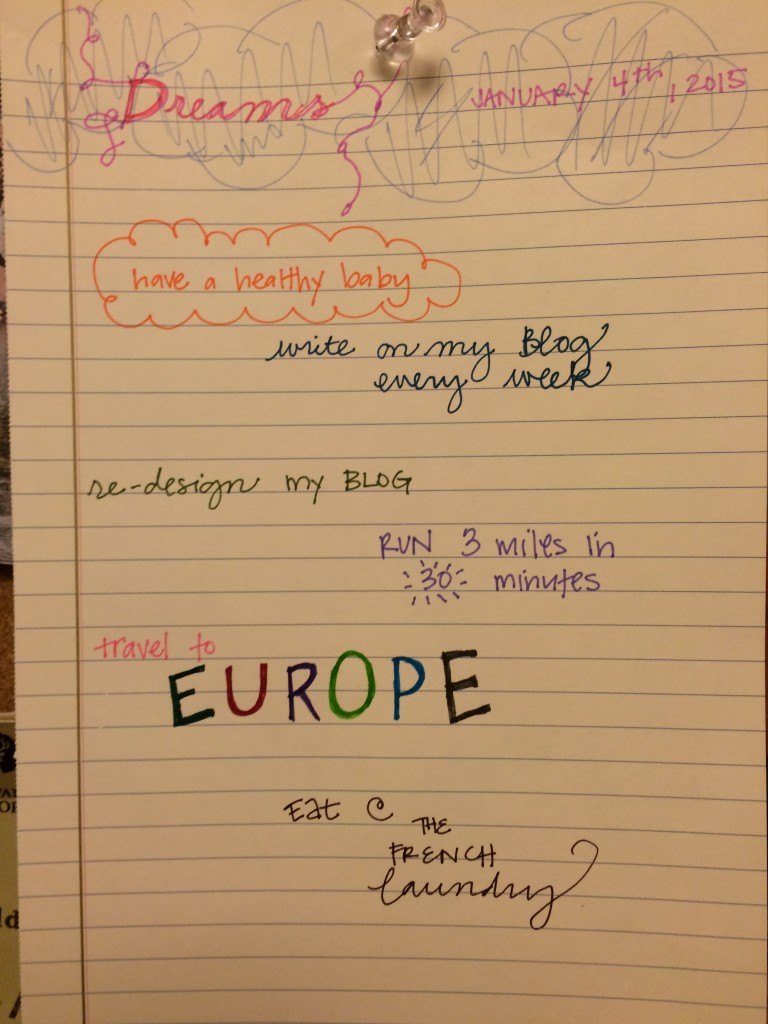 Dreams
JANUARY 4th, 2015
have a healthy baby
write on my Blog
every week
re-design my BLOG
RUN 3 miles in
30 minutes
travel to
EUROPE
Eat @
THE
FRENCH
laundry